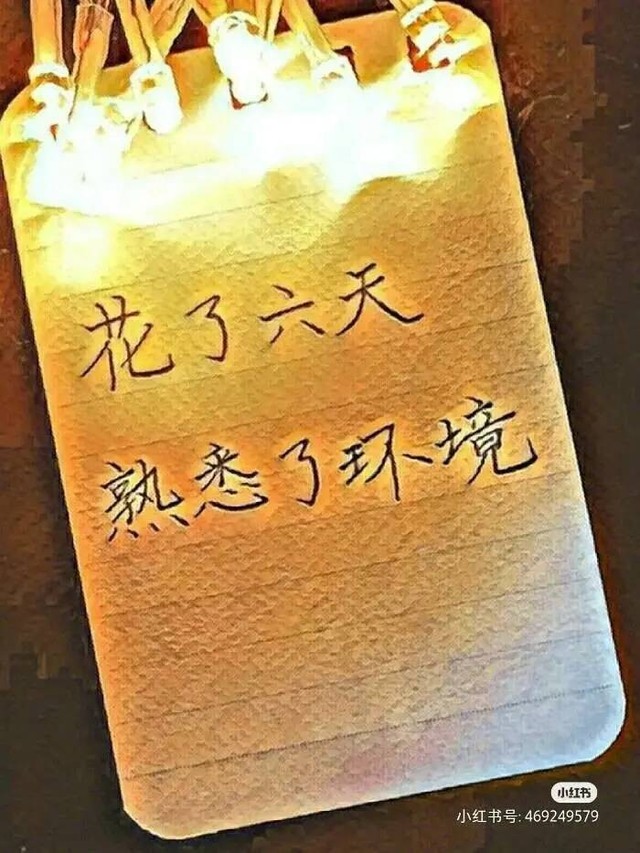 花了六天
熟悉了环境
小红书
小红书号: 469249579